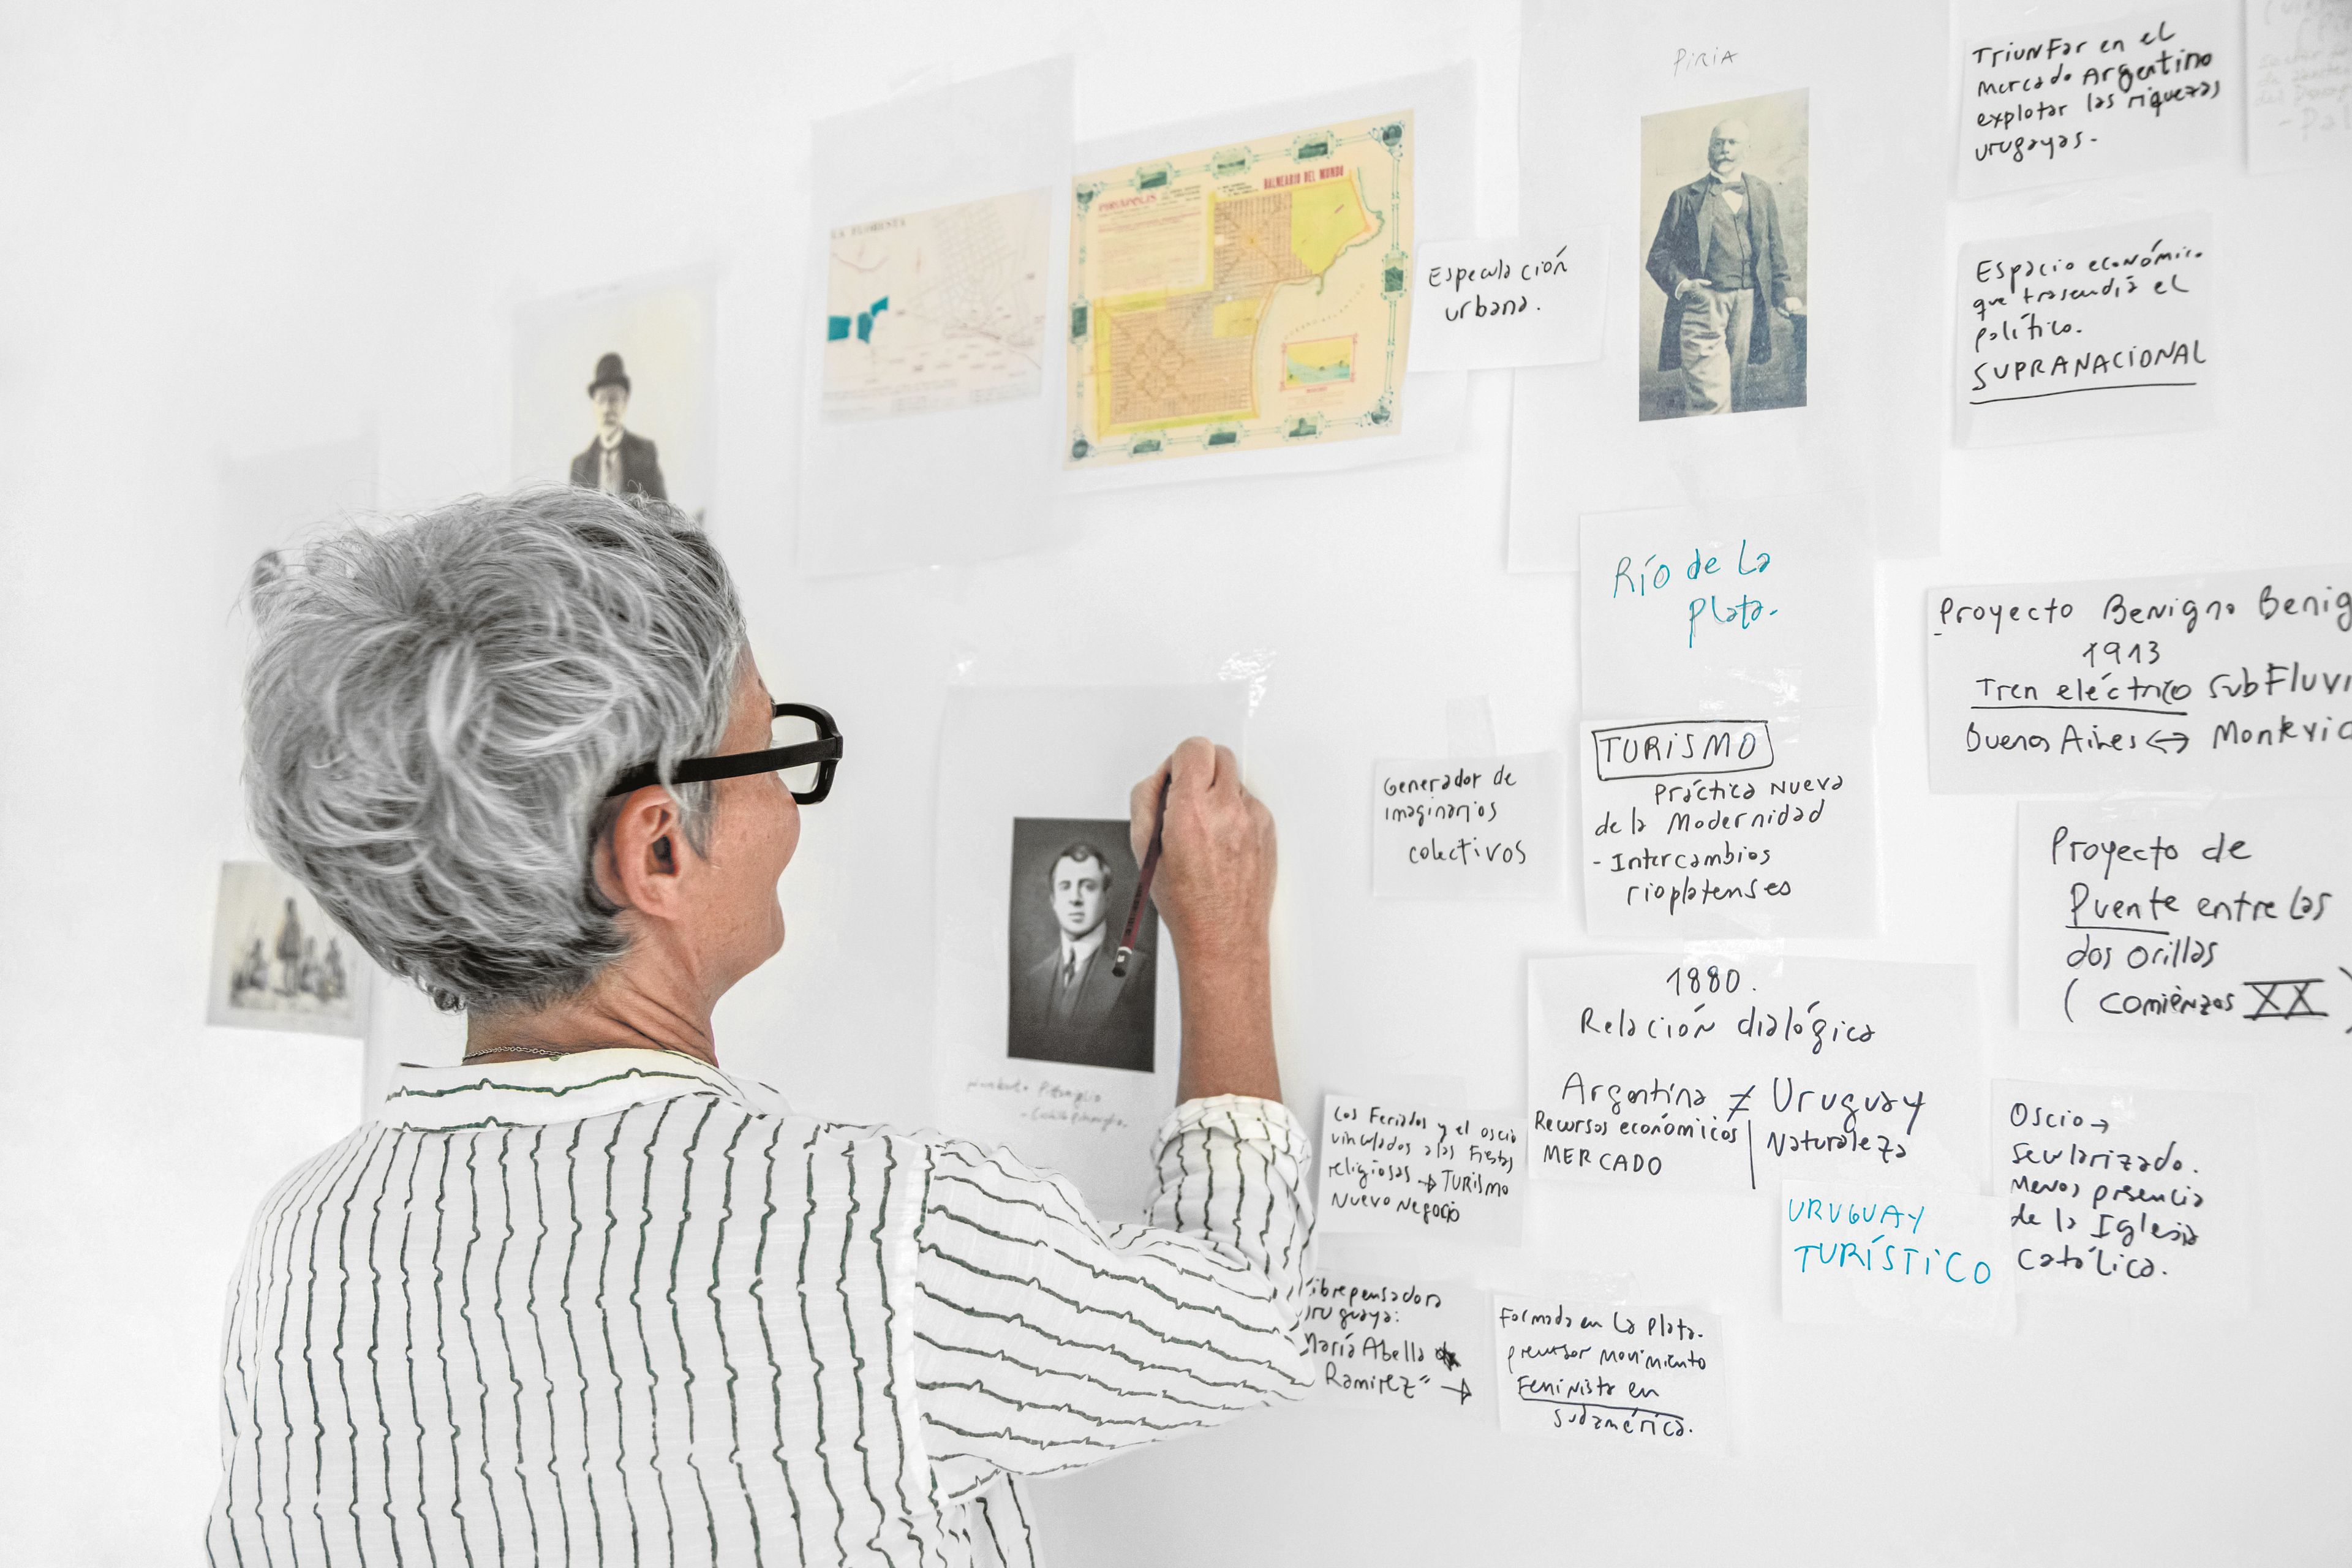 PiRiA
LA FLORESTA
PIRIÁPOLIS
BALNEARIO DEL MUNDO
Especulación
urbana.
Triunfar en el
mercado Argentino
explotar las riquezas
urugayas.-
Espacio económico
que trasendió el
político.
SUPRANACIONAL
Río de La
Plata.
Proyecto Benigno Benig
1913
Tren eléctrico subFluvi
Buenos Aires <-> Montevid
TURISMO
Práctica Nueva
de la Modernidad
- Intercambios
rioplatenses
Generador de
imaginarios
colectivos
Proyecto de
Puente entre las
dos orillas
( comienzos XX )
1880.
Relación dialógica
Argentina ≠ Uruguay
Recursos económicos | Naturaleza
MERCADO
Los Feriados y el oscio
vinculados a las Fiestas
religiosas -> TURISMO
Nuevo Negocio
URUGUAY
TURÍSTICO
Oscio ->
Secularizado.
Menos presencia
de la Iglesia
Católica.
librepensadora
uruguaya:
María Abella
Ramirez" ->
Formada en La Plata.
precursor movimiento
Feminista en
sudamérica.